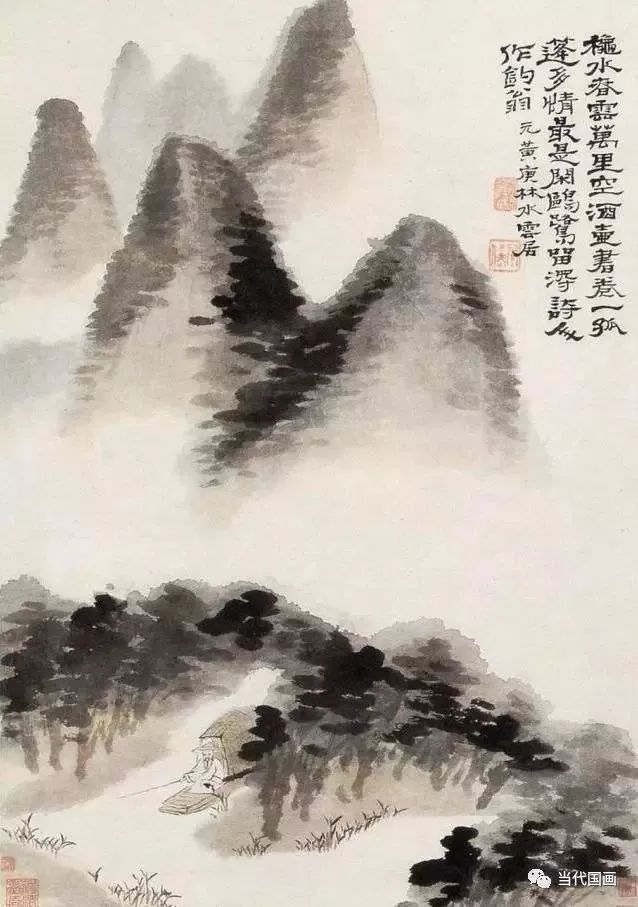 穐水春雲萬里空酒壺書卷一孤
蓬多情最是閑鷗鷺留得詩人
作釣翁 元黃庚林水雲居
当代国画